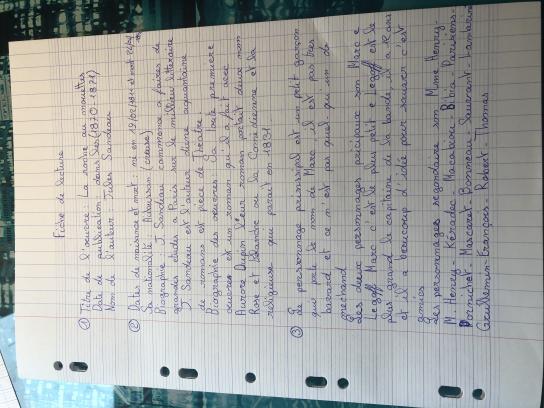 Fiche de lecture
① Titre de l'oeuvre : La roche au mouettes
Date de publication dans Sues (1870-1871)
Nom de l'auteur Jules Sandeau
② Dates de naissance et mort : né en 19/02/1811 et mort
Sa nationalité Aubusson (creuse)
Biographie : J. Sandeau commence a faires de
grandes études a Paris sur le milieu litteraire
J. Sandeau est l'auteur d'une cinquantaine
de romans et pièce de Théatre.
Biographie des oeuvres : La toute premiere
oeuvres est un roman qu'il a fait avec
Aurore Dupin leur roman portait deux nom
Rose et Blanche ou la Comédienne et la
religieuse qui parait en 1831.
③ Le personnage principal est un petit garçon
qui porte le nom de Marc il est pas très
bavard et ce n'est pas quel qu'un de
mechand
Les deux personnages principaux son Marc e
Legoff Marc c'est le plus petit e Legoff est le
plus grand le capitaine de la bande, il a 12 ans
et il a beaucoup d'idée pour sauver c'est
amies
Les personnages segondaire son Mme Henry-
M. Henry - Kéradec - Macabiou - Brica - Parisiens -
Pornichet - Margaret - Bonneau - Sauvrant - Lamberin
Guillemin - François - Robert - Thomas